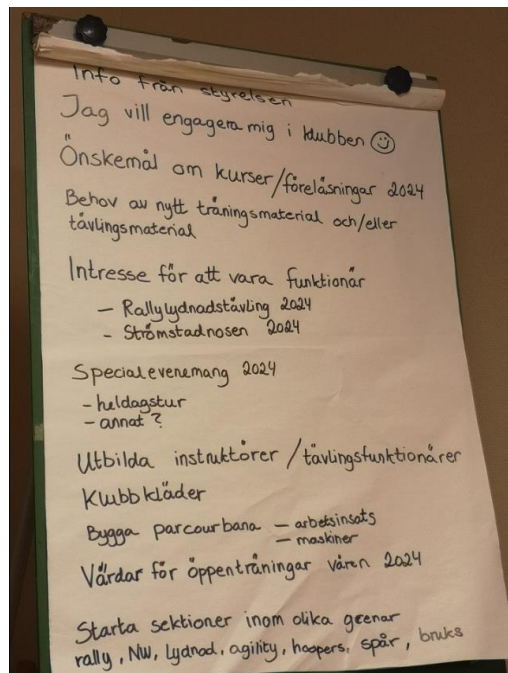 Info från styrelsen
Jag vill engagera mig i klubben ☺
Önskemål om kurser/föreläsningar 2024
Behov av nytt träningsmaterial och/eller
tävlingsmaterial
Intresse för att vara funktionär
– Rallylydnadstävling 2024
- Strömstadnosen 2024
Specialevenemang 2024
- heldagstur
- annat?
Utbilda instruktörer / tävlingsfunktionärer
Klubbkläder
Bygga parcourbana – arbetsinsats
– maskiner
Värdar för öppenträningar våren 2024
Starta sektioner inom olika grenar
rally, NW, Lydnad, agility, hoopers, spår, bruks